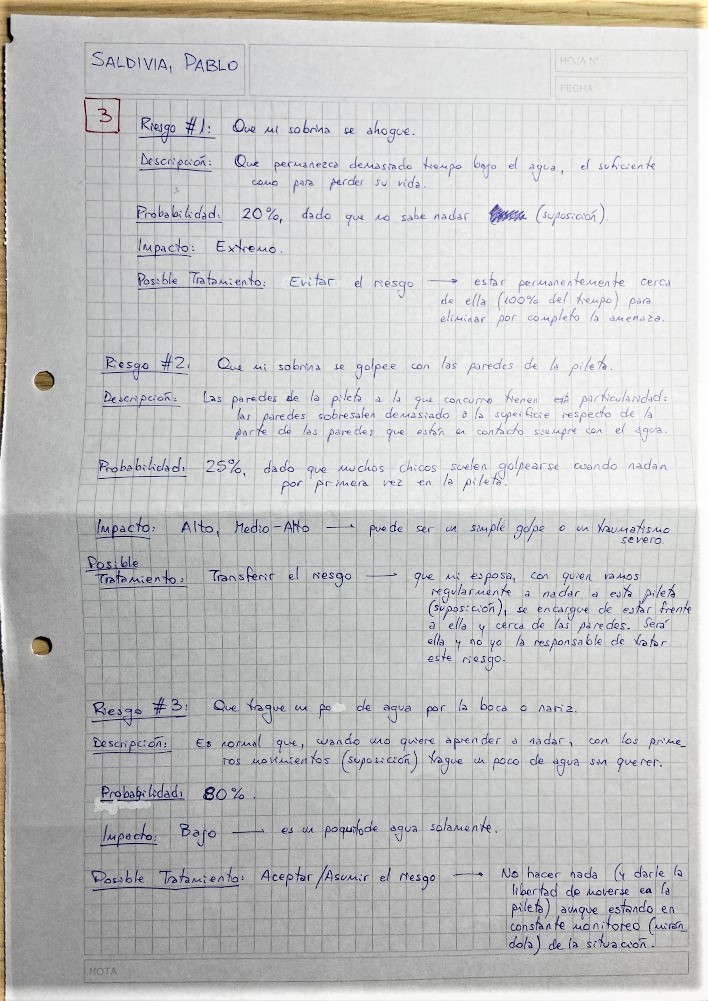 SALDIVIA, PABLO
HOJA Nº
FECHA
3
Riesgo #1: Que mi sobrina se ahogue.
Descripción: Que permanezca demasiado tiempo bajo el agua, el suficiente
como para perder su vida.
Probabilidad: 20%, dado que no sabe nadar (suposición).
Impacto: Extremo.
Posible Tratamiento: Evitar el riesgo → estar permanentemente cerca
de ella (100% del tiempo) para
eliminar por completo la amenaza.
Riesgo #2: Que mi sobrina se golpee con las paredes de la pileta.
Descripción: Las paredes de la pileta a la que concurro tienen esta particularidad:
las paredes sobresalen demasiado a la superficie respecto de la
parte de las paredes que están en contacto siempre con el agua.
Probabilidad: 25%, dado que muchos chicos suelen golpearse cuando nadan
por primera vez en la pileta.
Impacto: Alto, Medio-Alto → puede ser un simple golpe o un traumatismo
severo
Posible
Tratamiento: Transferir el riesgo → que mi esposa, con quien vamos
regularmente a nadar a esta pileta
(suposición), se encargue de estar frente
a ella y cerca de las paredes. Será
ella y no yo la responsable de tratar
este riesgo.
Riesgo #3: Que trague un po de agua por la boca o nariz.
Descripción: Es normal que, cuando uno quiere aprender a nadar, con los prime_
ros movimientos (suposición) trague un poco de agua sin querer.
Probabilidad: 80%.
Impacto: Bajo → es un poquito de agua solamente.
Posible Tratamiento: Aceptar/Asumir el riesgo → No hacer nada (y darle la
libertad de moverse en la
pileta) aunque estando en
constante monitoreo (mirán
dola) de la situación.
NOTA